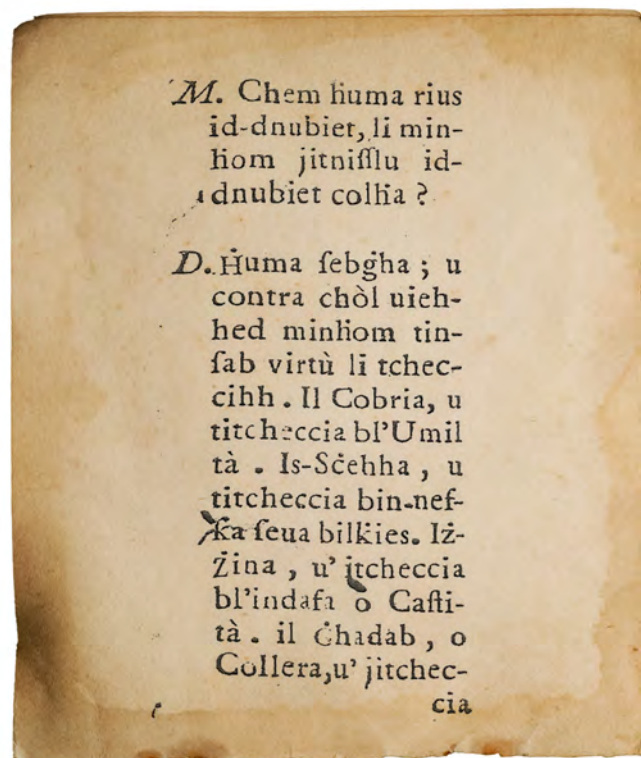 M. Chem ħuma rius
id-dnubiet, li min-
ħiom jitniſſlu id-
dnubiet colħa ?
D. Ħuma ſebgħa ; u
contra chòl uieh-
hed minħiom tin-
ſab virtù li tchec-
cihh . Il Cobria, u
titcheccia bl'Umil
tà . Is-Sċehha , u
titcheccia bin-nef-
ka ſeua bilkies. Iż-
Żina , u' jtcheccia
bl'indafa ò Caſti-
tà . il Ġhadab , o
Collera,u' jitchec-
cia